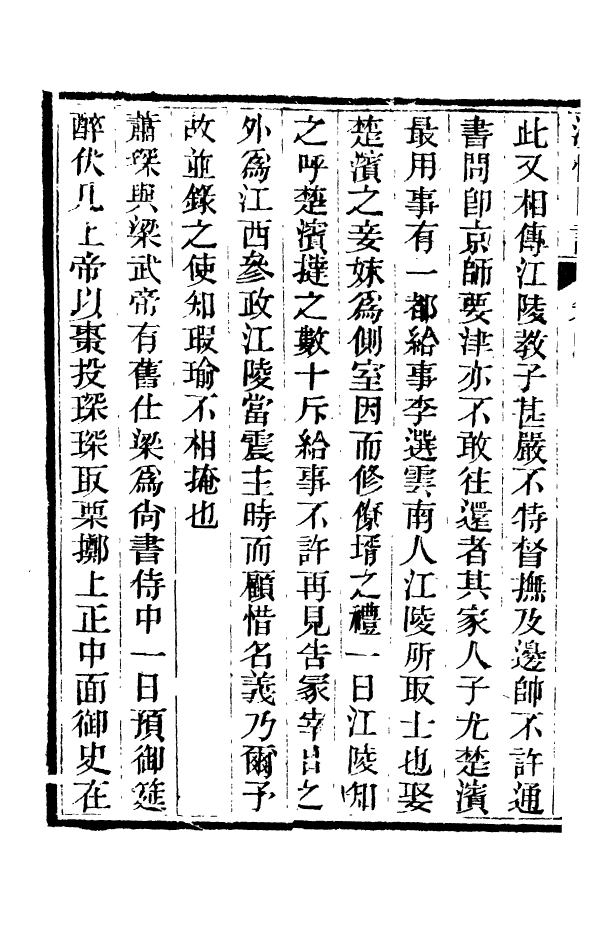 此又相傳江陵教子甚嚴不特督撫及邊帥不許通
書問卽京師要津亦不敢往還者其家人子尤楚濱
最用事有一都給事李選雲南人江陵所取士也娶
楚濱之妾妹爲側室因而修僚壻之禮一日江陵知
之呼楚濱撻之數十斥給事不許再見告冢宰出之
外爲江西參政江陵當震主時而顧惜名義乃爾予
故並錄之使知瑕瑜不相掩也
蕭琛與梁武帝有舊仕梁爲尙書侍中一日預御筵
醉伏几上帝以棗投琛琛取栗擲上正中面御史在